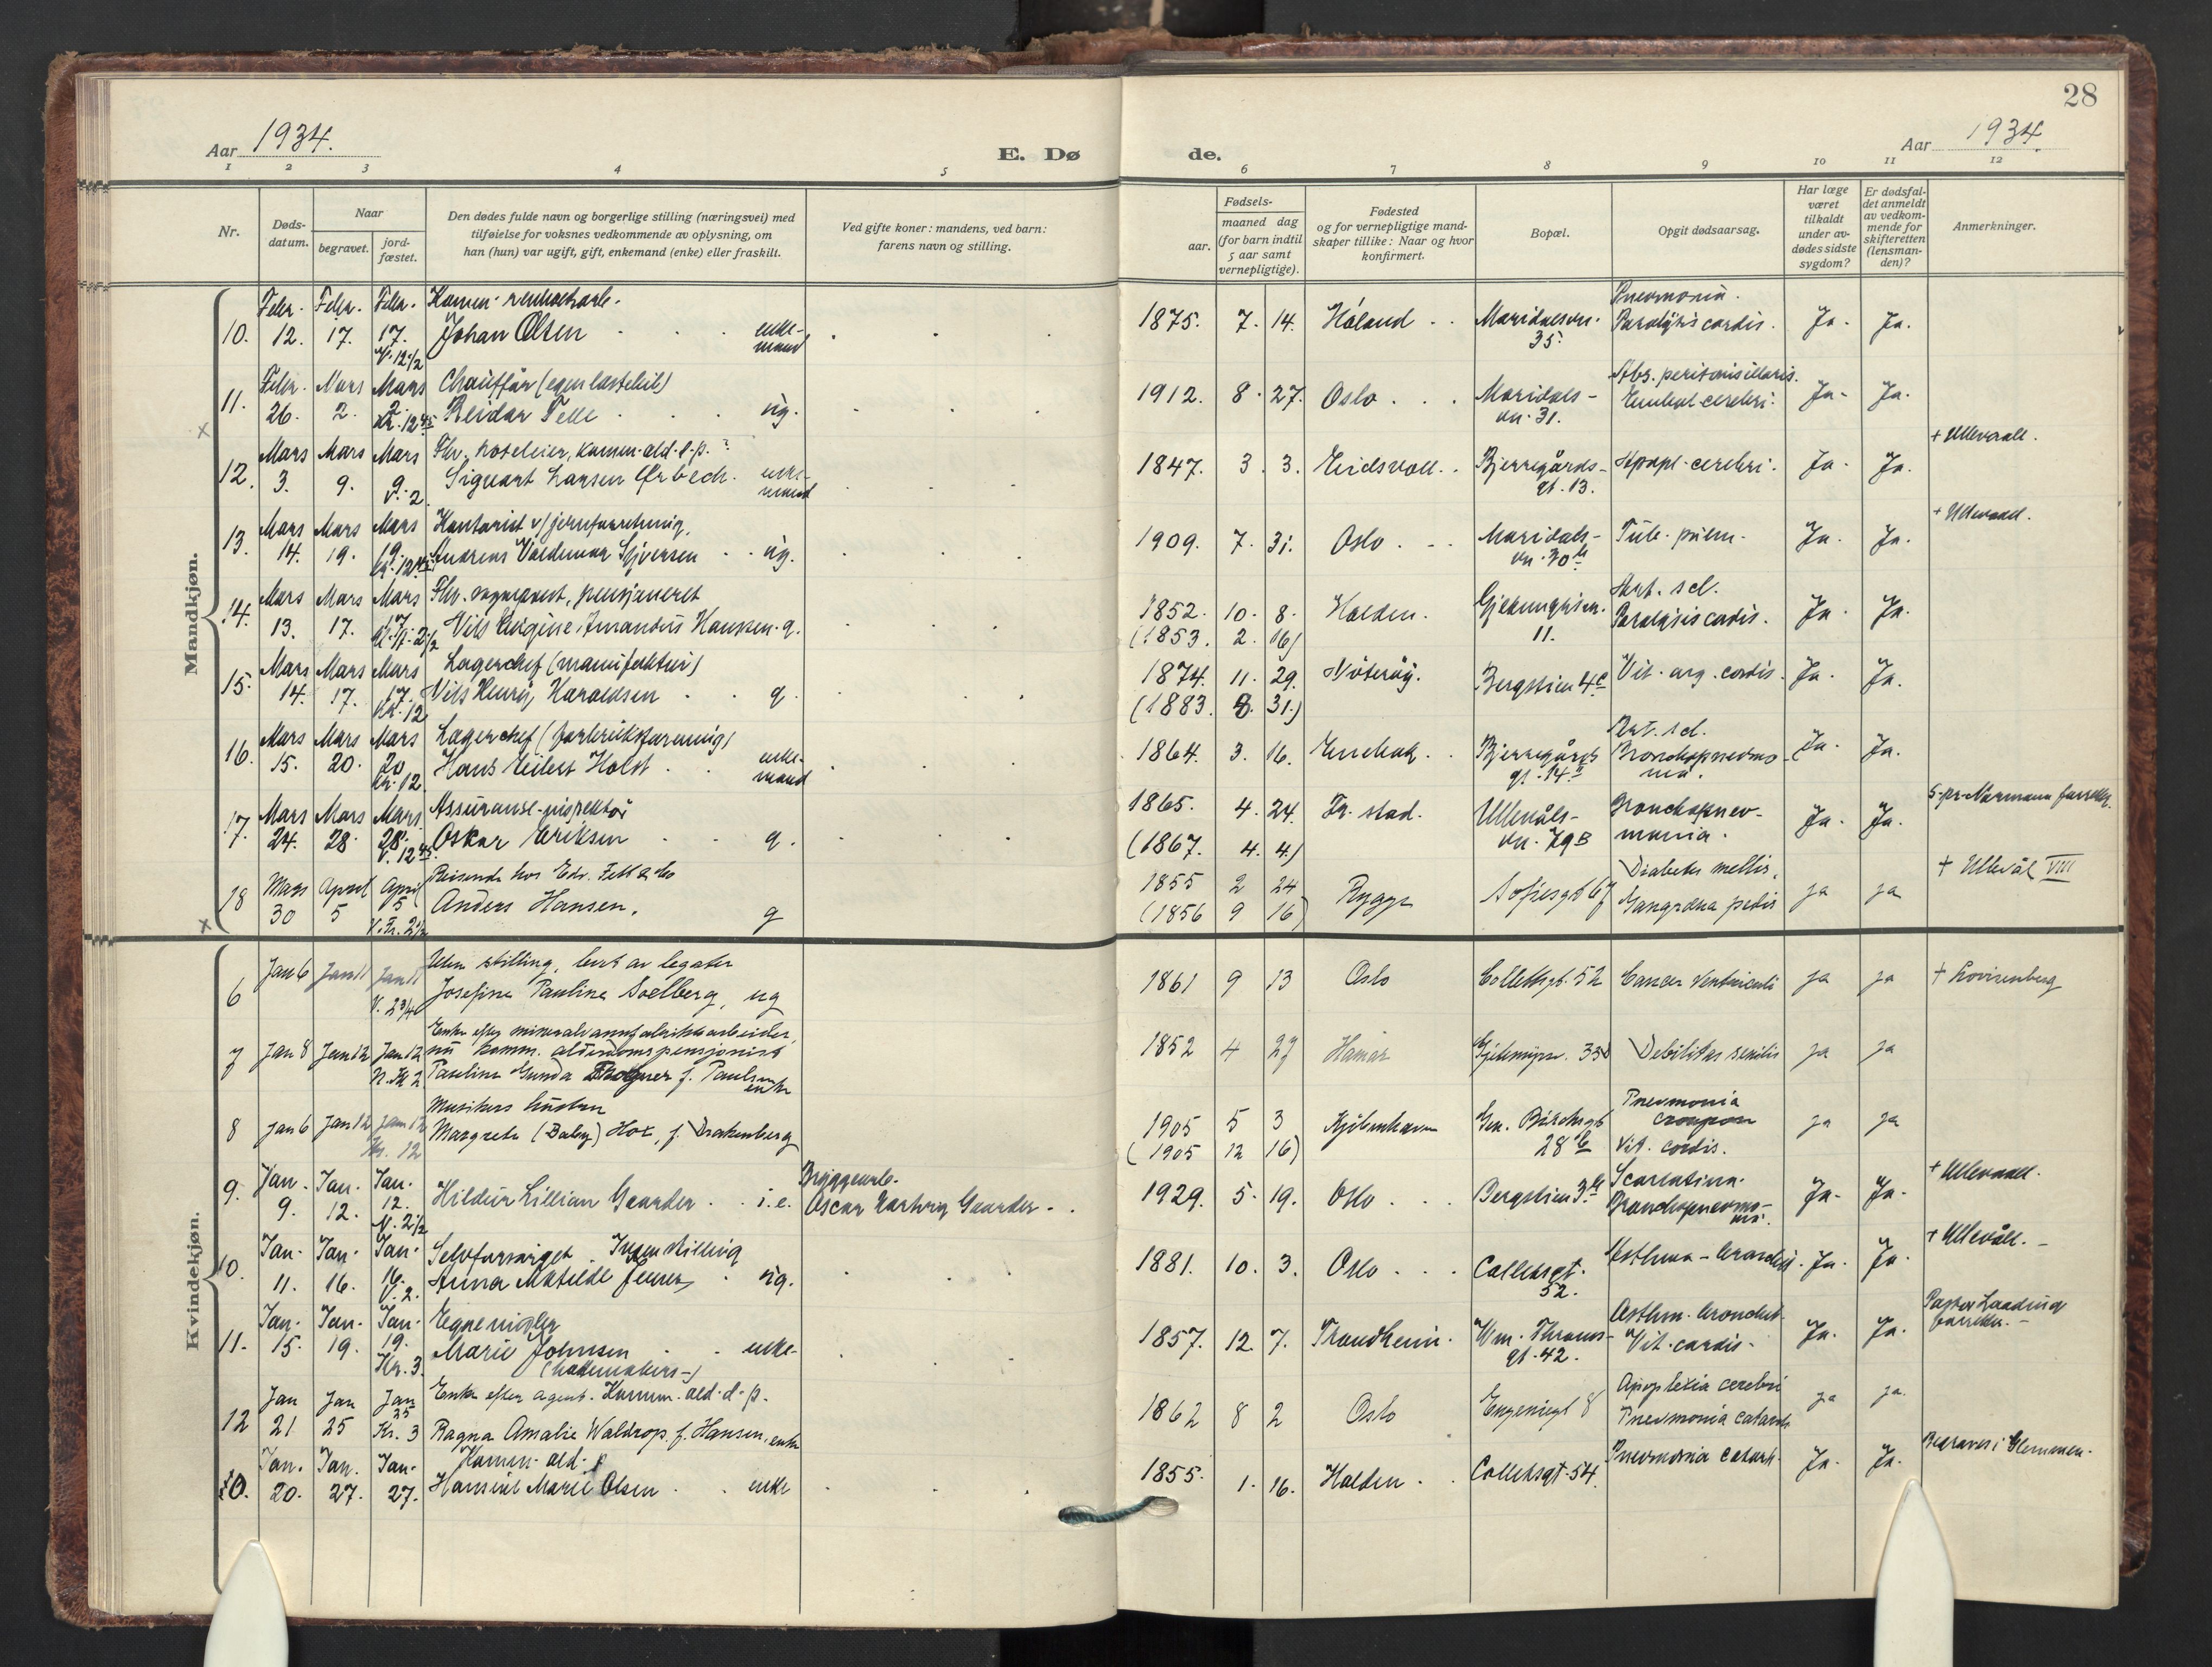 28
Aar 1934.
E. Døde.
Aar 1934.
1 2 3 4 5 6 7 8 9 10 11 12
Nr.
Døds-datum.
Naar
begravet.
jord-fæstet.
Den dødes fulde navn og borgerlige stilling (næringsvei) med
tilføielse for voksnes vedkommende av oplysning, om
han (hun) var ugift, gift, enkemand (enke) eller fraskilt.
Ved gifte koner: mandens, ved barn:
farens navn og stilling.
aar.
Fødsels-
maaned dag
(for barn indtil
5 aar samt
vernepligtige).
Fødested
og for vernepligtige mand-
skaper tillike: Naar og hvor
konfirmert.
Bopæl.
Opgit dødsaarsag.
Har læge
været
tilkaldt
under av-
dødes sidste
sygdom?
Er dødsfal-
det anmeldt
av vedkom-
mende for
skifteretten
(lensman-
den)?
Anmerkninger.
Mandkjøn.
10. Febr. 12. Febr. 17. Febr. 17. V. 12 1/2
Johan Olsen enke-mand
1875. 7. 14. Høland Maridalsvn. 35. Pneumonia. Paralysis cordis. Ja. Ja.
11. Febr. 26. Mars 2. Mars 2. Kr. 12 45
Chauffør (egen lastebil)
Reidar Felle ug.
1912. 8. 27. Oslo Maridals-vn. 31. Abs. peritonsillaris. Embol. cerebri. Ja. Ja.
12. Mars 3. Mars 9. Mars 9. V. 2
Fhv. hotelleier, komm. ald. d. p.
Sigvart Larsen Ørbech enke-mand
1847. 3. 3. Eidsvoll Bjerregårds-gt. 13. Apopl. cerebri. Ja. Ja. + Ullevaall.
13. Mars 14. Mars 19. Mars 19. Kr. 12 45
Kontorist v/jernforretning.
Andreas Valdemar Syversen ug.
1909. 7. 31. Oslo Maridals-vn. 30 b Tub. pulm. Ja. Ja. + Ullevaall.
14. Mars 13. Mars 17. Mars 17. 2 1/2
Fhv. vognmand, pensjoneret
Nils Eugine Amandus Hansen g.
1852. 10. 8. (1853. 2. 16) Halden. 11. Art. scl. Paralysis cordis. Ja. Ja.
15. Mars 14. Mars 17. Mars 17. Kr. 12
Lagerchef (manufaktur)
Nils Henrij Haraldsen g.
1874. 11. 29. (1883. 8. 31.) Nøterøy. Bergstien 4 c Vit. org. cordis. Ja. Ja.
16. Mars 15. Mars 20. Mars 20 Kr. 12
Hans Eilert Holst enke-mand
1864. 3. 16. Enebak Bjerregårds gt. 14 a Art. scl. Bronchopneumo-nia. Ja. Ja.
17. Mars 24. Mars 28. Mars 28. V. 12 45
Assuranse-inspektør
Oskar Eriksen g.
1865. 4. 24. (1867. 4. 4.) Fr. stad. Ullevåls-vn. 79 B Bronchopneu-monia. Ja. Ja. S. pr. Normann forretter.
18 Mars 30 April 5 April 5 V. Fr. 2 1/2
Reisende hos Edv. Fett & Co
Anders Hansen. g
1855 2 24 (1856 9 16) Rygge Sofiesgt 67 Diabetes mellis, Gangræna pedis ja ja + Ullevål VIII
Kvindekjøn.
6 Jan 6 Jan 11 Jan 11 V. 2 3/4
Uten stilling, levet av legater
Josefine Pauline Soelberg, ug
1861 9 13 Oslo Collettsgt. 52 Cancer Ventriculi ja ja + Lovisenberg
7 Jan 8 Jan 12 Jan 12 N. Kl 2
Enke efter mineralvannfabrikkarbeider,
nu komm. alderdomspensjonist
Pauline Gunda Thogner f. Paulsen enke
1852 4 27 Hamar Gjetemyrsv. 33 d Debilitas senilis ja ja
8 Jan 6 Jan 12 Jan 12 Kr. 12
Musikers hustru
Margrete (Baby) Hox, f. Drakenberg
1905 5 3 (1905 12 16) Kjøbenhavn Gen. Birchsgt 28 b Pneumonia crouposa Vit. cordis. ja ja
9. Jan. 9. Jan. 12. Jan. 12. V. 2 1/2
Hildur Lillian Gaarder i. e. Bryggearb. Oscar Hartvig Gaarder
1929. 5. 19. Oslo Bergstien 3 b Scarlatina. Bronchopneumo-ni. Ja. Ja. + Ullevaall.
10. Jan. 11. Jan. 16. Jan. 16. V. 2.
Selvforsørget. Ingen stilling
Anna Matilde Jensen ug.
1881. 10. 3. Oslo Colletsgt. 52. Asthma-bronchi. Ja. Ja. + Ullevåll.
11. Jan. 15. Jan. 19. Jan. 19. Kr. 3.
Egne midler
Marie Johnsen enke-
1857. 12. 7. Trondheim. Wm. Thranes-gt. 42. Asthm. bronchit. Vit. cordis. Ja. Ja. Pastor Laading forretter.
12 Jan 21 Jan 25 Jan 25 Kr. 3
Enke efter agent. Komm. ald. d. p.
Ragna Amalie Waldrop f. Hansen, enke
1862 8 2 Oslo Eugeniesgt 8 Apoplexia cerebri Pneumonia catarrh ja ja.
Jan. 20. Jan. 27. Jan. 27.
Komm. ald. p
Hansine Marie Olsen enke
1855. 1. 16. Halden Colletsgt. 54. Pneumonia catarrh. Ja. Ja. Begraves i Glemmen.